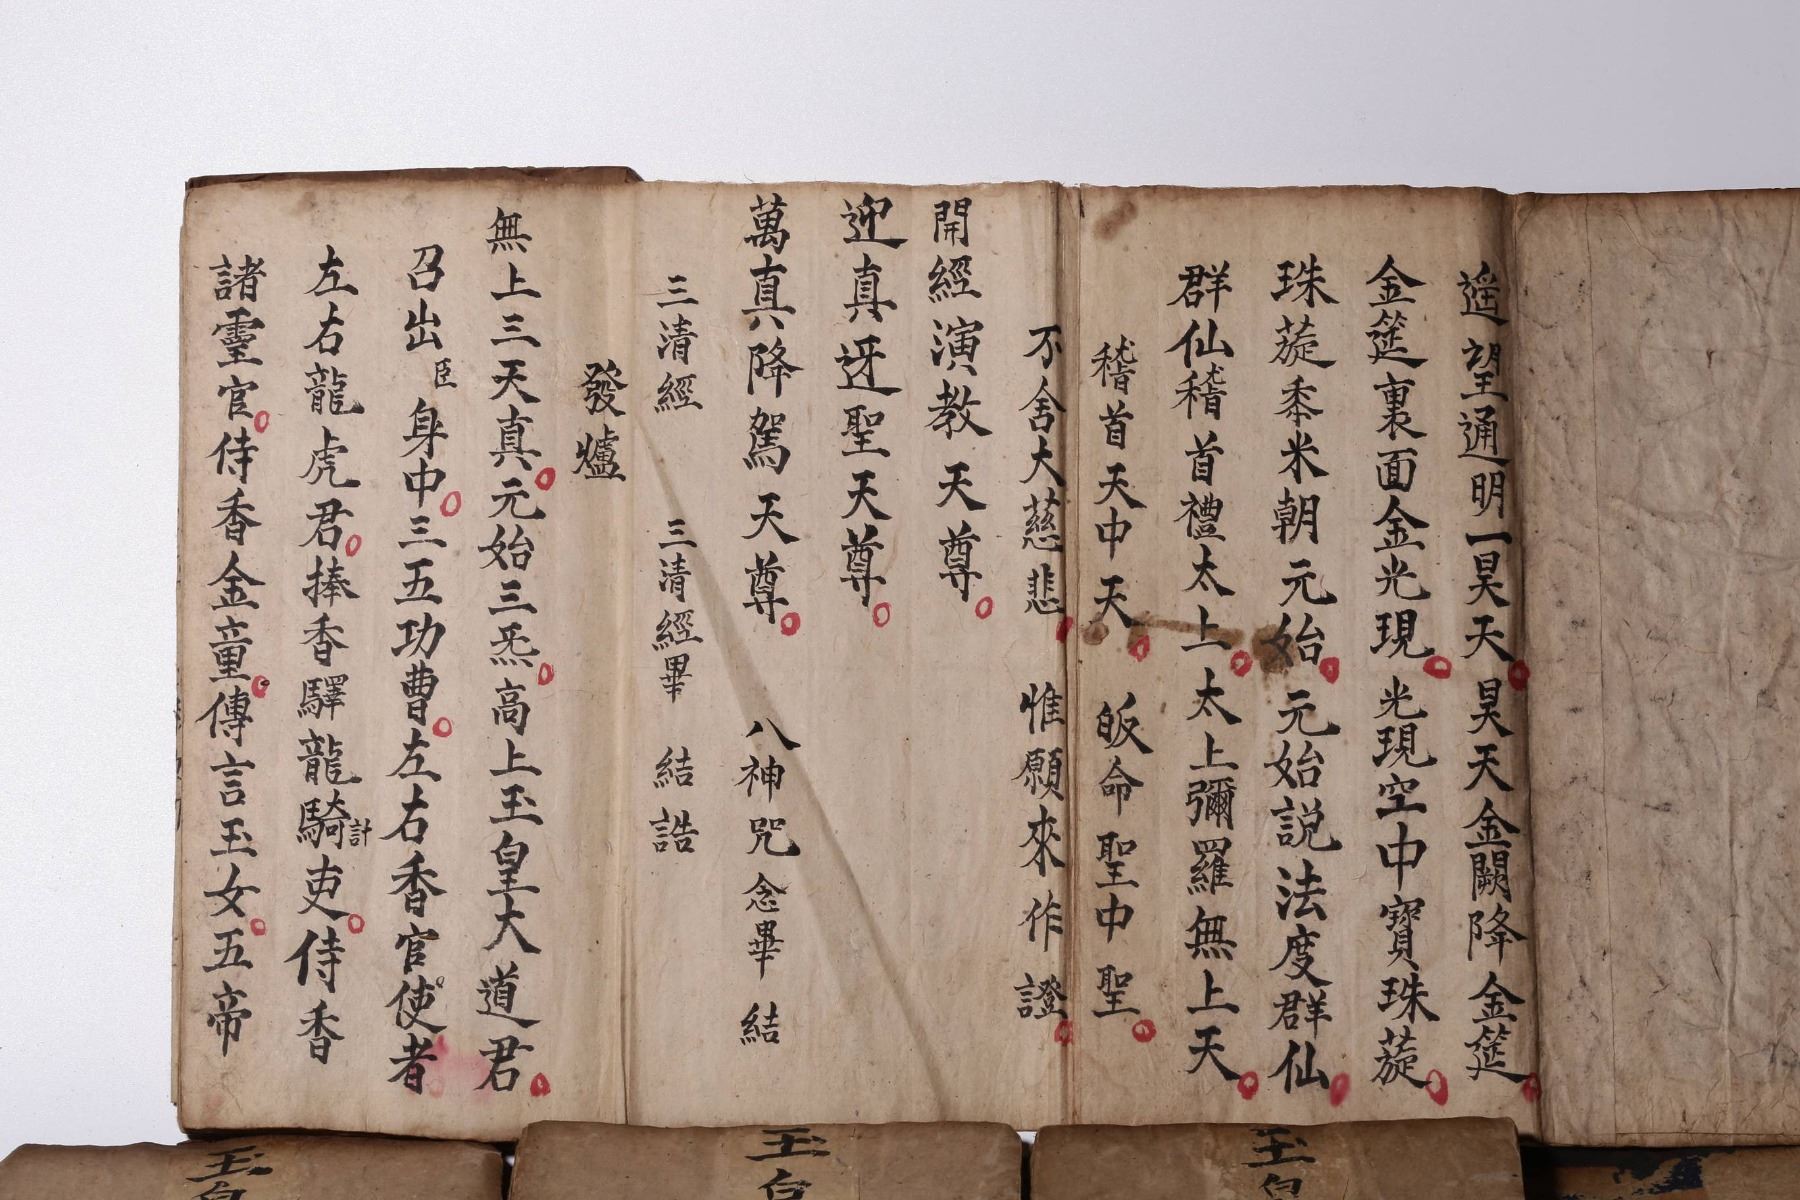 遥望通明一昊天昊天金闕降金筵
金筵裏面金光現光現空中寶珠蔙
珠蔙黍米朝元始元始説法度群仙
群仙稽首禮太上太上彌羅無上天
稽首天中天 皈命聖中聖
不舍大慈悲 惟願來作證
開經演教天尊
迎真迓聖天尊
萬真降駕天尊 八神咒念畢結
三清經 三清經畢 結誥
發爐
無上三天真元始三炁高上玉皇大道君
召出臣身中三五功曹左右香官使者
左右龍虎君捧香驛龍騎計吏侍香
諸靈官侍香金童傳言玉女五帝
玉
玉
玉